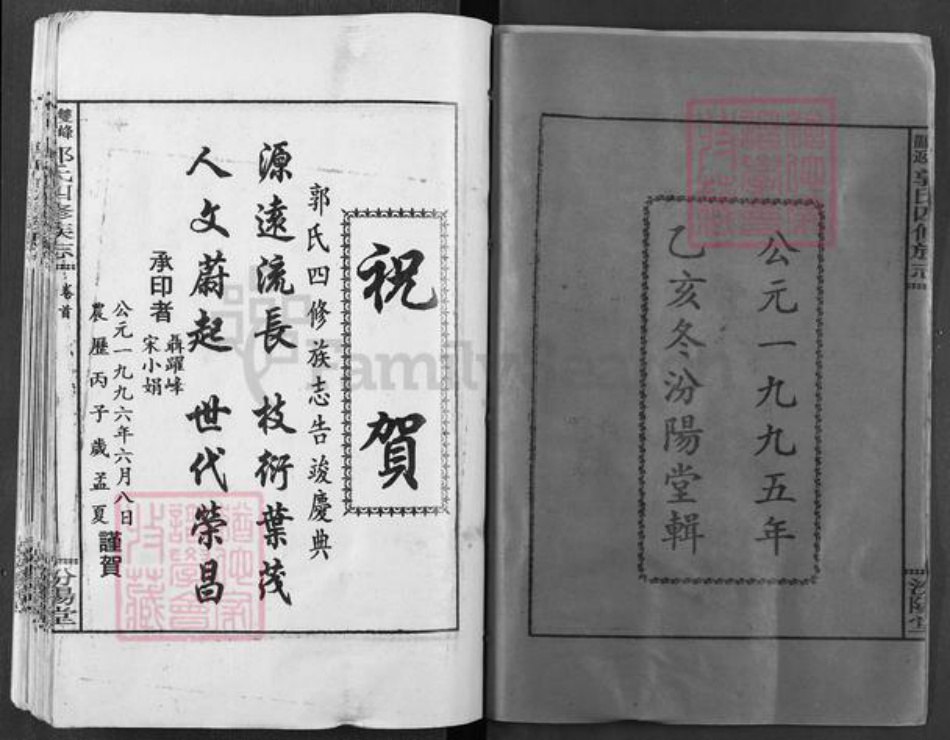 公元一九九五年
乙亥冬汾陽堂輯
祝賀
郭氏四修族志告竣慶典
源遠流長 枝衍葉茂
人文蔚起 世代榮昌
承印者 聶躍峰
宋小娟
公元一九九六年六月八日
農曆丙子歲孟夏 謹賀
雙峰郭氏四修族志 卷首
汾陽堂
FamilySearch